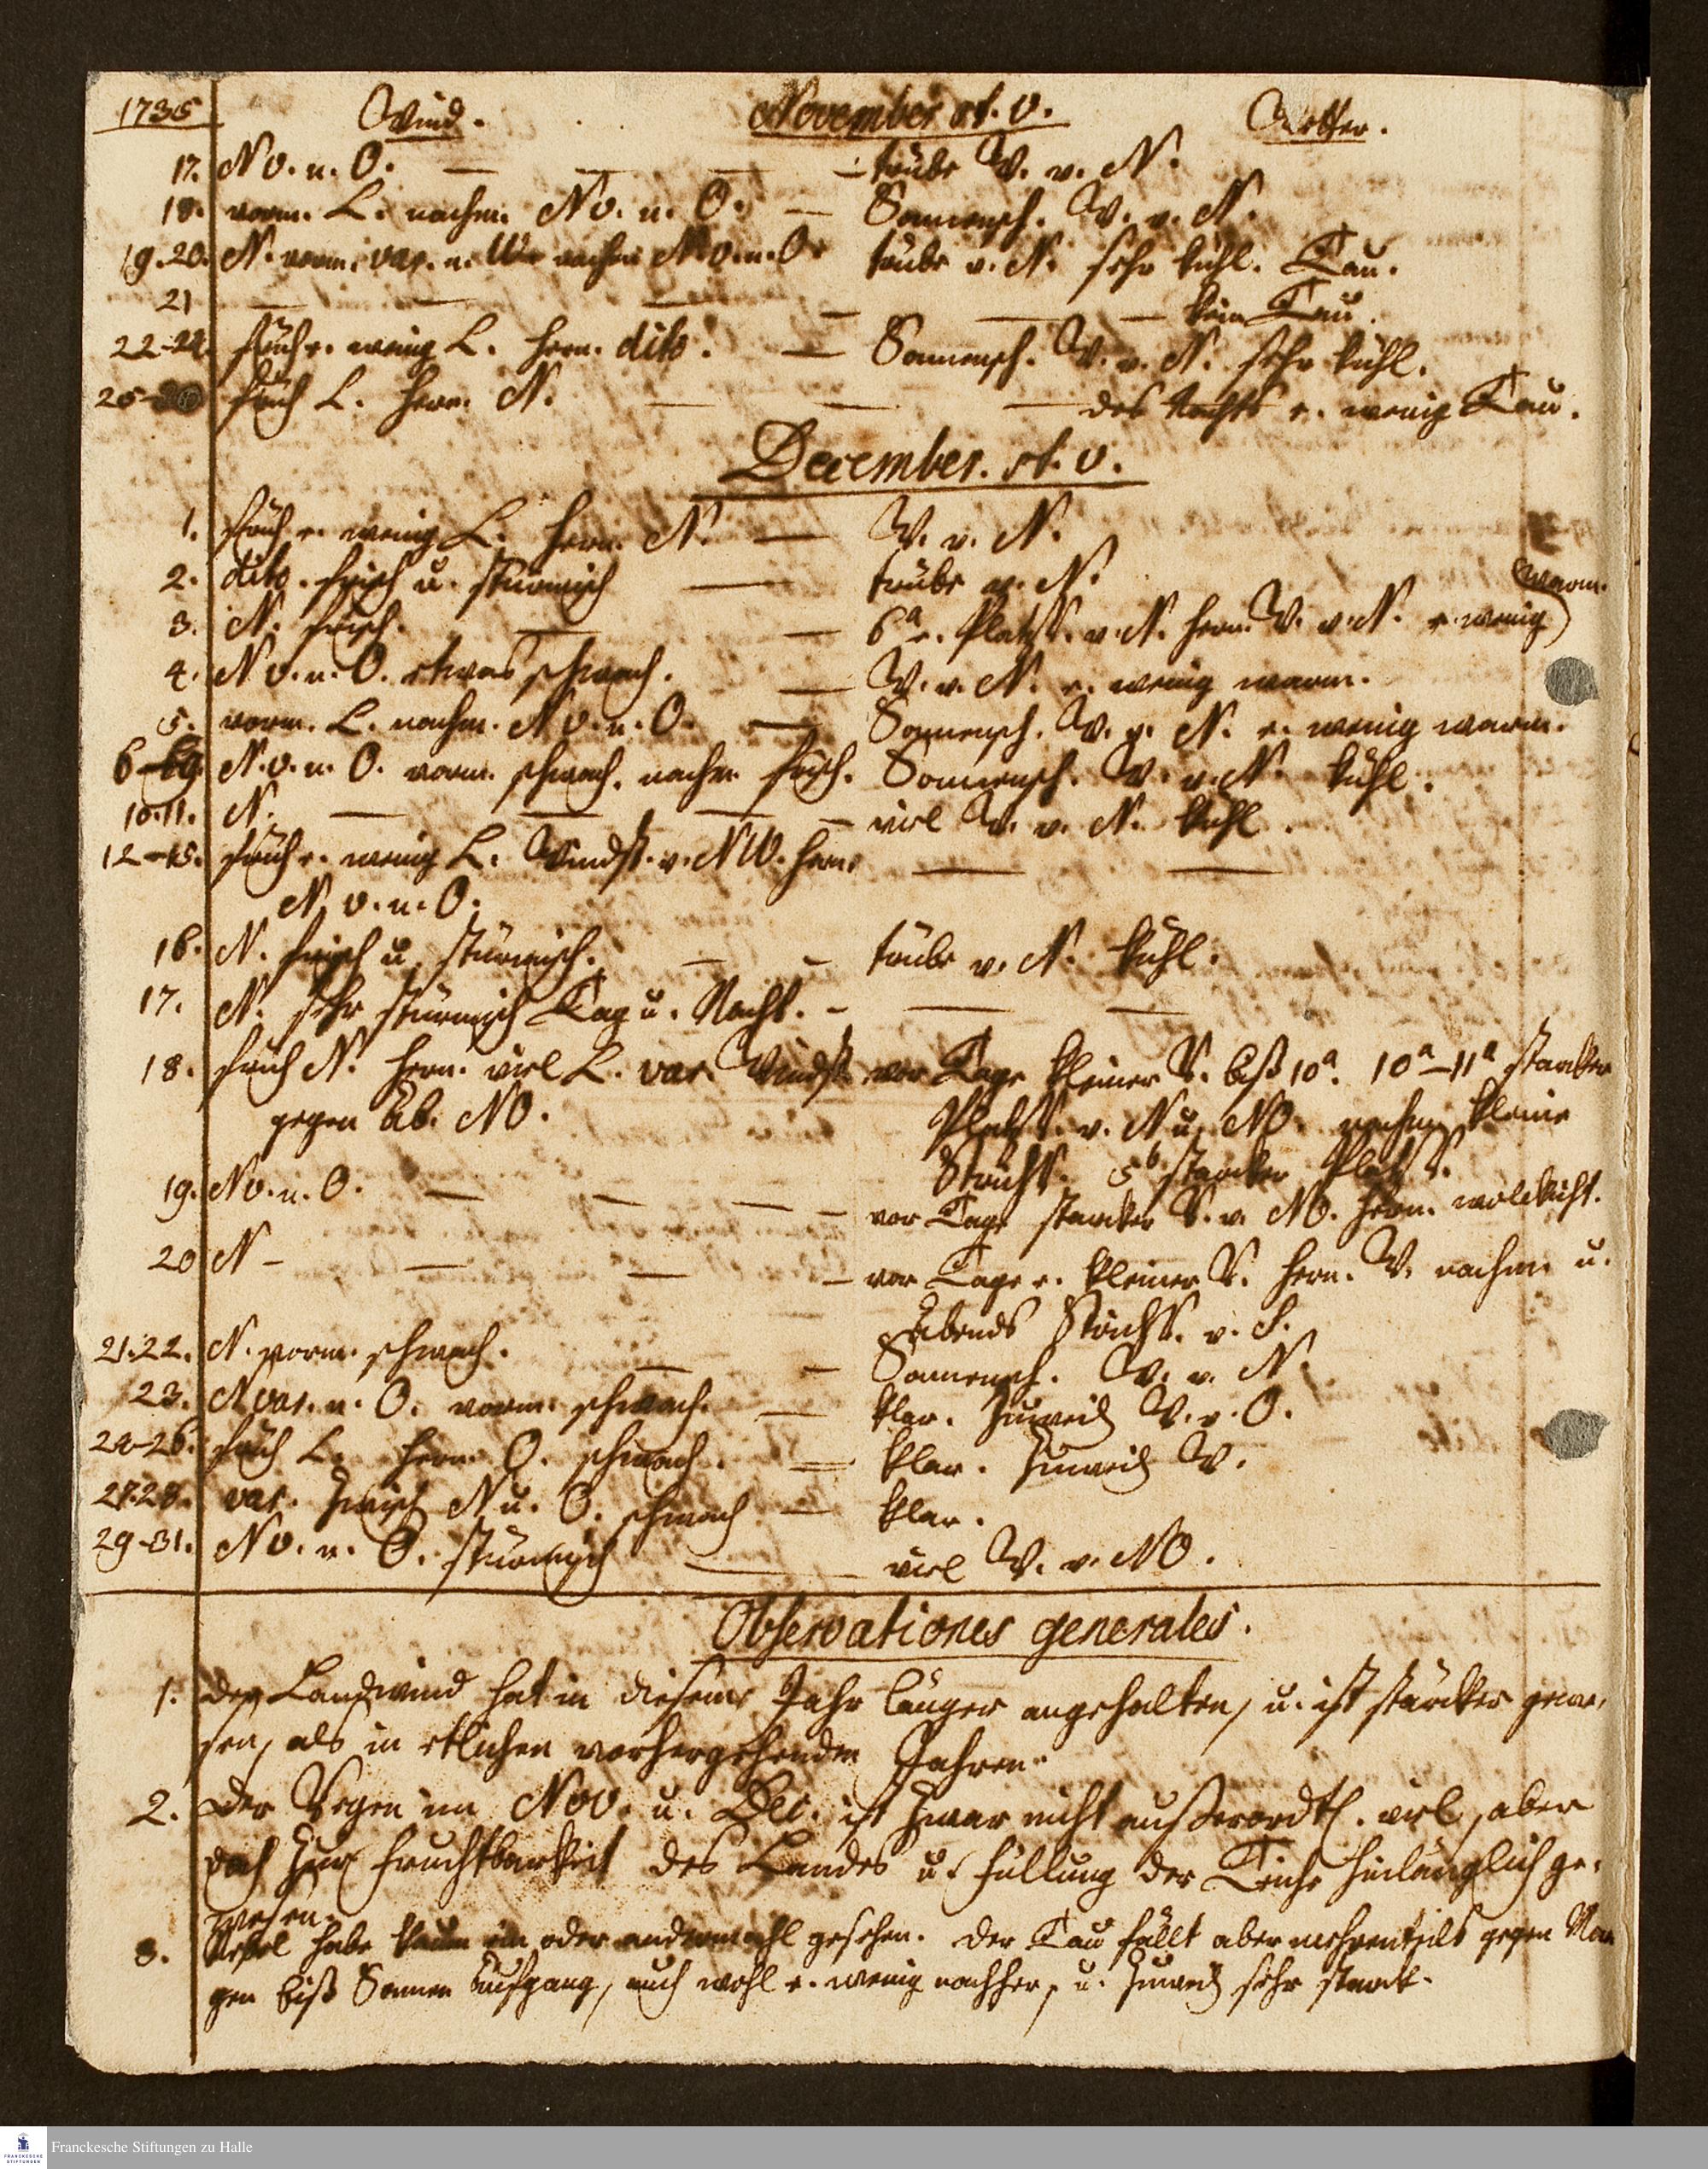 1735 Wind. November st. v. Wetter.
17. N v. u. O. — — — — trübe W. v. N.
18. vorm. L. nachm. N v. u. O. — Sonnensch. W. v. N.
19.20. N. vorm. var. u. nachm N. v. u. O. trübe v. N. sehr kühl. Tau.
21 — — — — — — kein Tau.
22-24. früh e. wenig L. hern. dito. — Sonnensch. W. v. N. sehr kühl.
25- früh L. hern. N. — — — des Nachts e. wenig Tau.
December. st. v.
1. früh e. wenig L. hern. N. — W. v. N.
2. dito. frisch u. stürmisch — trübe v. N.
3. N. frisch. — — 6a e. Platzr. v. N. hern. W. v. N. e. wenig warm.
4. N v. u. O. etwas schwach. — W. v. N. e. wenig warm.
5. vorm. L. nachm. N v. u. O. — Sonnensch. W. v. N. e. wenig warm.
6-9 N. v. u. O. vorm. schwach. nachm frisch. Sonnensch. W. v. N. kühl.
10.11. N. — — — — viel W. v. N. kühl.
12-15. früh e. wenig L. Windst. v. NW. hern. — —
N. v. u. O.
16. N. frisch u. stürmisch. — — trübe v. N. kühl.
17. N. sehr stürmisch Tag u. Nacht. — — —
18. früh N. hern. viel L. var. Windst. vor Tage kleiner R. biß 10a. 10a-11a starcker
gegen Ab. NO. Platzr. v. N u. NO. nachm kleine
Strichr. 5b starcker Platzr.
19. N v. u. O. — — — — vor Tage starcker R. v. NO. hern. wolckicht.
20 N — — — — vor Tage e. kleiner R. hern. W. nachm. u.
Abends Strichr. v. S.
21.22. N. vorm. schwach. — — Sonnensch. W. v. N.
23. N var. u. O. vorm. schwach. — klar. zuweil W. v. O.
24-26. früh L. hern. O. schwach. — klar. zuweil W.
27.28. var. zwisch N u. O. schwach — klar.
29-31. N v. u. O. stürmisch — — viel W. v. NO.
Observationes generales.
1. der Landwind hat in diesem Jahr länger angehalten, u. ist stärcker gewe-
sen, als in etlichen vorhergehenden Jahren.
2. der Regen im Nov. u. Dec. ist zwar nicht außerordtl. viel, aber
doch zur Fruchtbarkeit des Landes u. Füllung der Teiche hinlänglich ge-
wesen.
3. Nebel habe kaum ein oder andermahl gesehen. der Tau fällt aber mehrentheils gegen Mor
gen biß Sonnen Aufgang, auch wohl e. wenig nachher, u. zuweil sehr starck.
Franckesche Stiftungen zu Halle